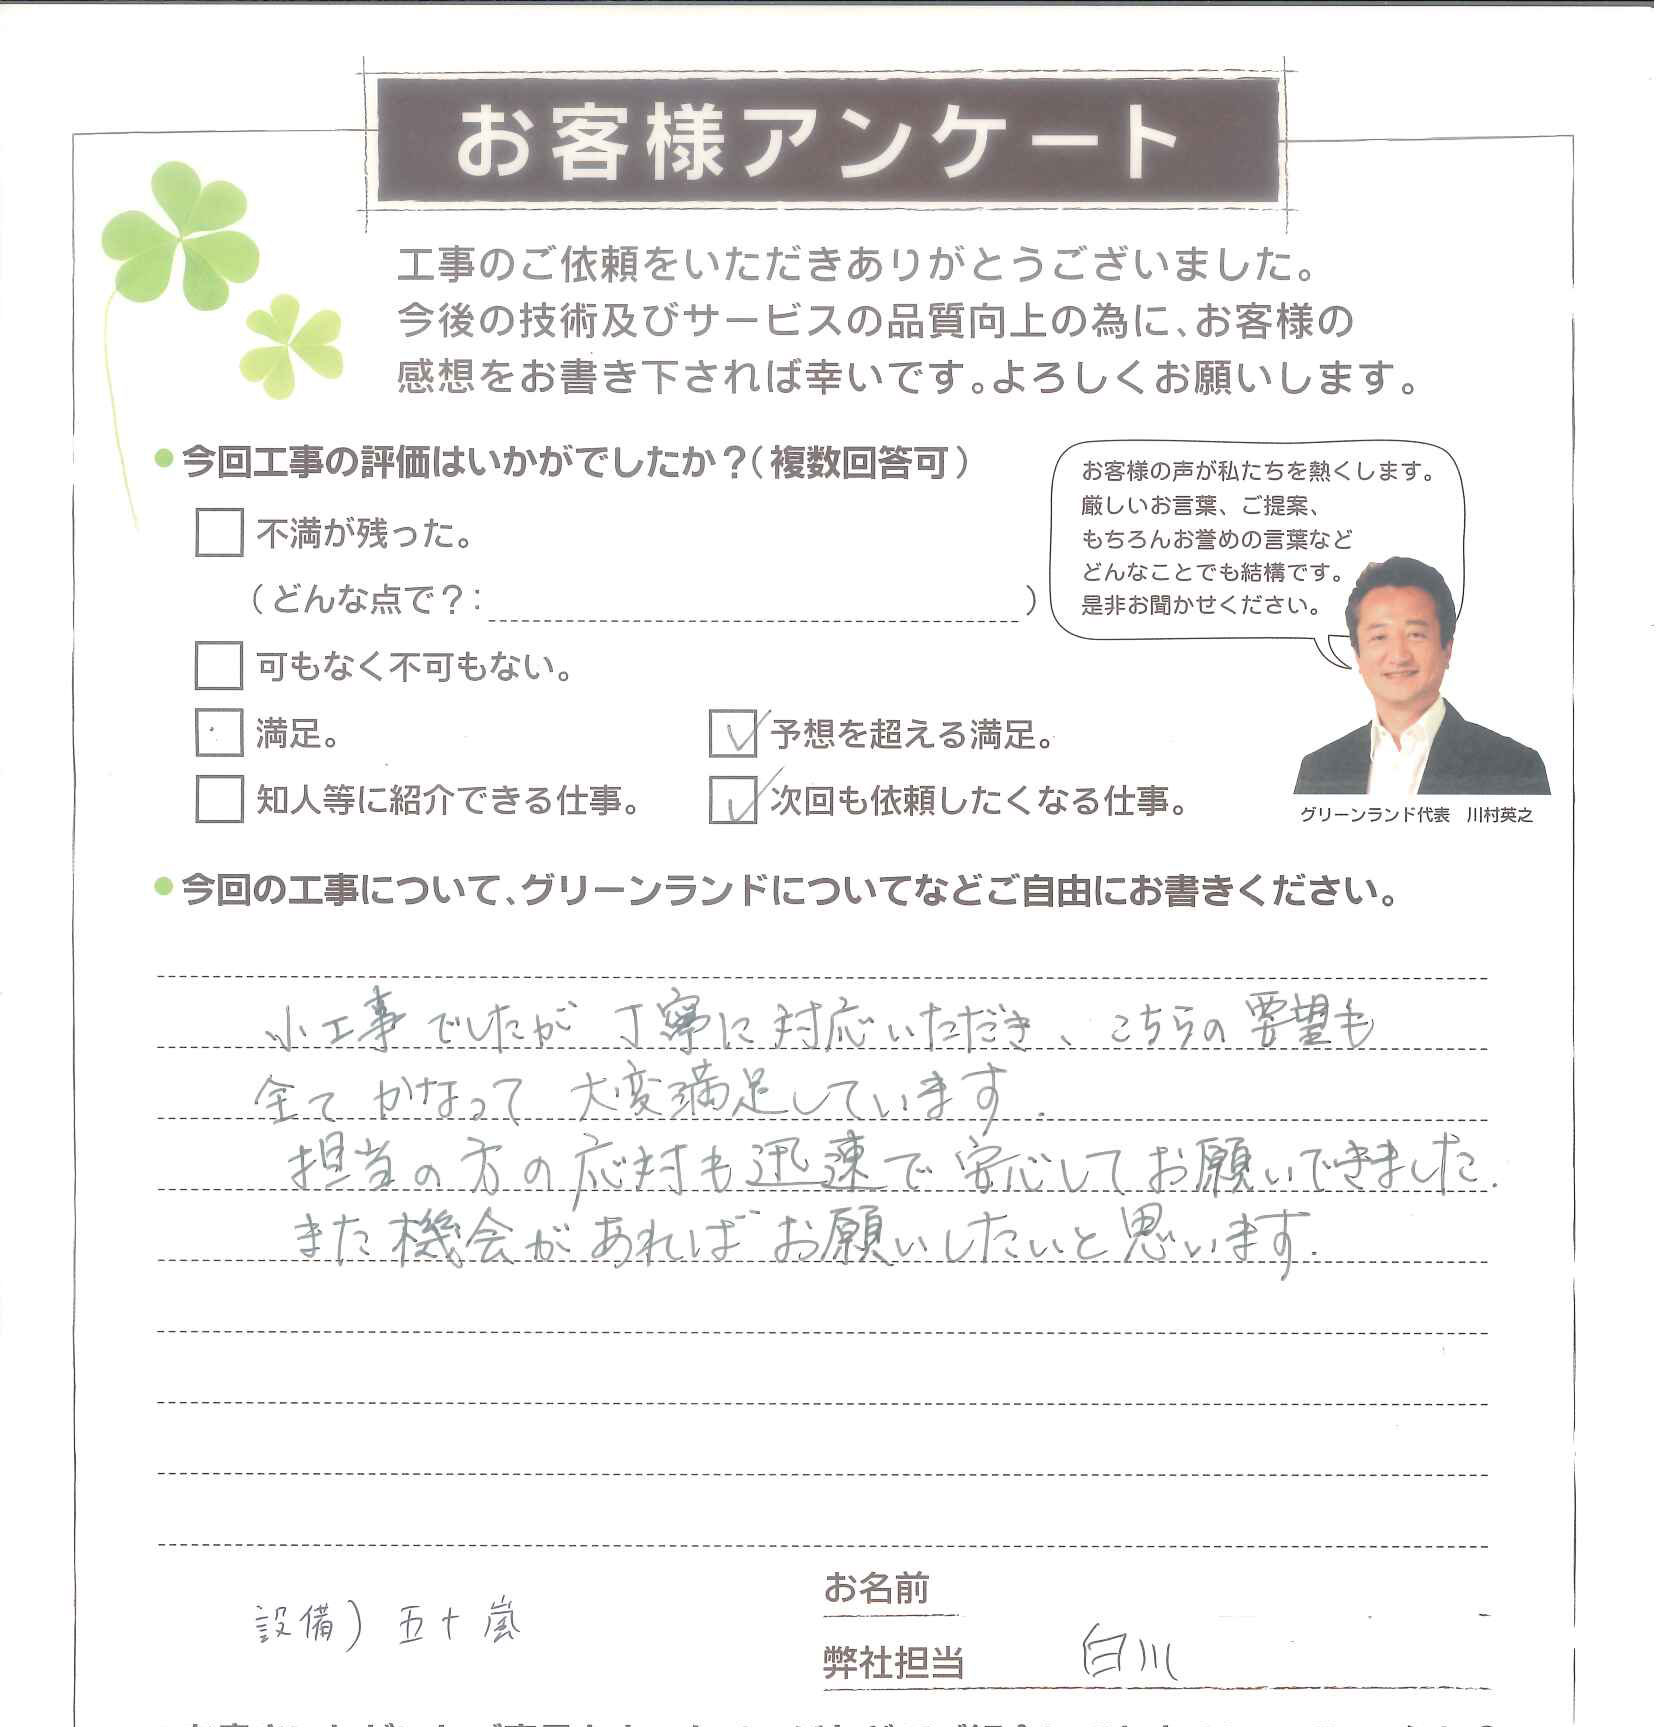 お客様アンケート
工事のご依頼をいただきありがとうございました。
今後の技術及びサービスの品質向上の為に、お客様の
感想をお書き下されば幸いです。よろしくお願いします。
今回工事の評価はいかがでしたか？（複数回答可）
不満が残った。
（どんな点で？：　）
可もなく不可もない。
満足。
予想を超える満足。
知人等に紹介できる仕事。
次回も依頼したくなる仕事。
お客様の声が私たちを熱くします。
厳しいお言葉、ご提案、
もちろんお誉めの言葉など
どんなことでも結構です。
是非お聞かせください。
グリーンランド代表　川村英之
今回の工事について、グリーンランドについてなどご自由にお書きください。
小工事でしたが 丁寧に対応いただき、こちらの要望も
全て かなって 大変満足しています.
担当の方の応対も迅速で安心してお願いできました.
また機会があればお願いしたいと思います.
設備）五十嵐
お名前
弊社担当　白川